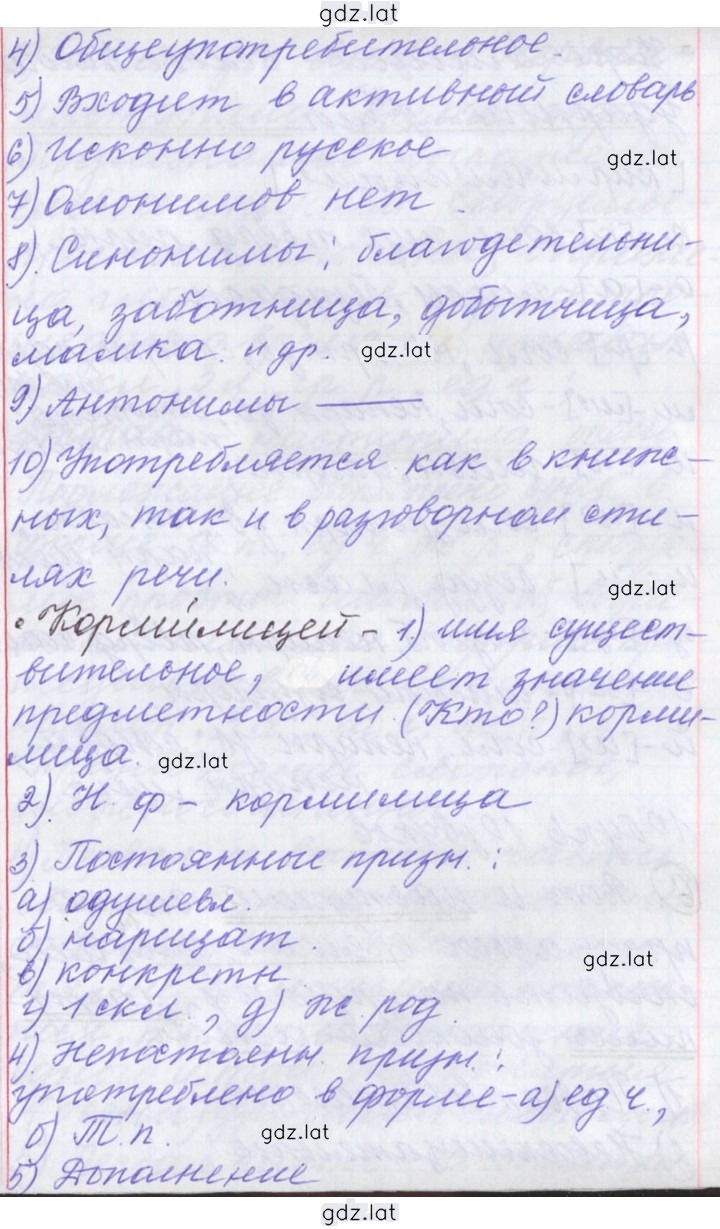 gdz.lat
4) Общеупотребительное.
5) Входит в активный словарь
6) Исконно русское
gdz.lat
7) Омонимов нет.
8). Синонимы: благодетельни-
ца, заботница, добытчица,
мамка. и др.
gdz.lat
9) Антонимы ———
10) Употребляется как в книж-
ных, так и в разговорном сти-
лях речи.
gdz.lat
• Корми́лицей - 1.) имя сущест-
вительное, имеет значение
предметности. (Кто?) корми-
лица.
gdz.lat
2). Н. ф - кормилица
3) Постоянные призн.:
а) одушевл.
б) нарицат.
в) конкретн
gdz.lat
г) 1 скл., д) ж род.
4) Непостоянн. призн.:
употреблено в форме - а) ед ч.,
б) Т. п.
gdz.lat
5) Дополнение
gdz.lat